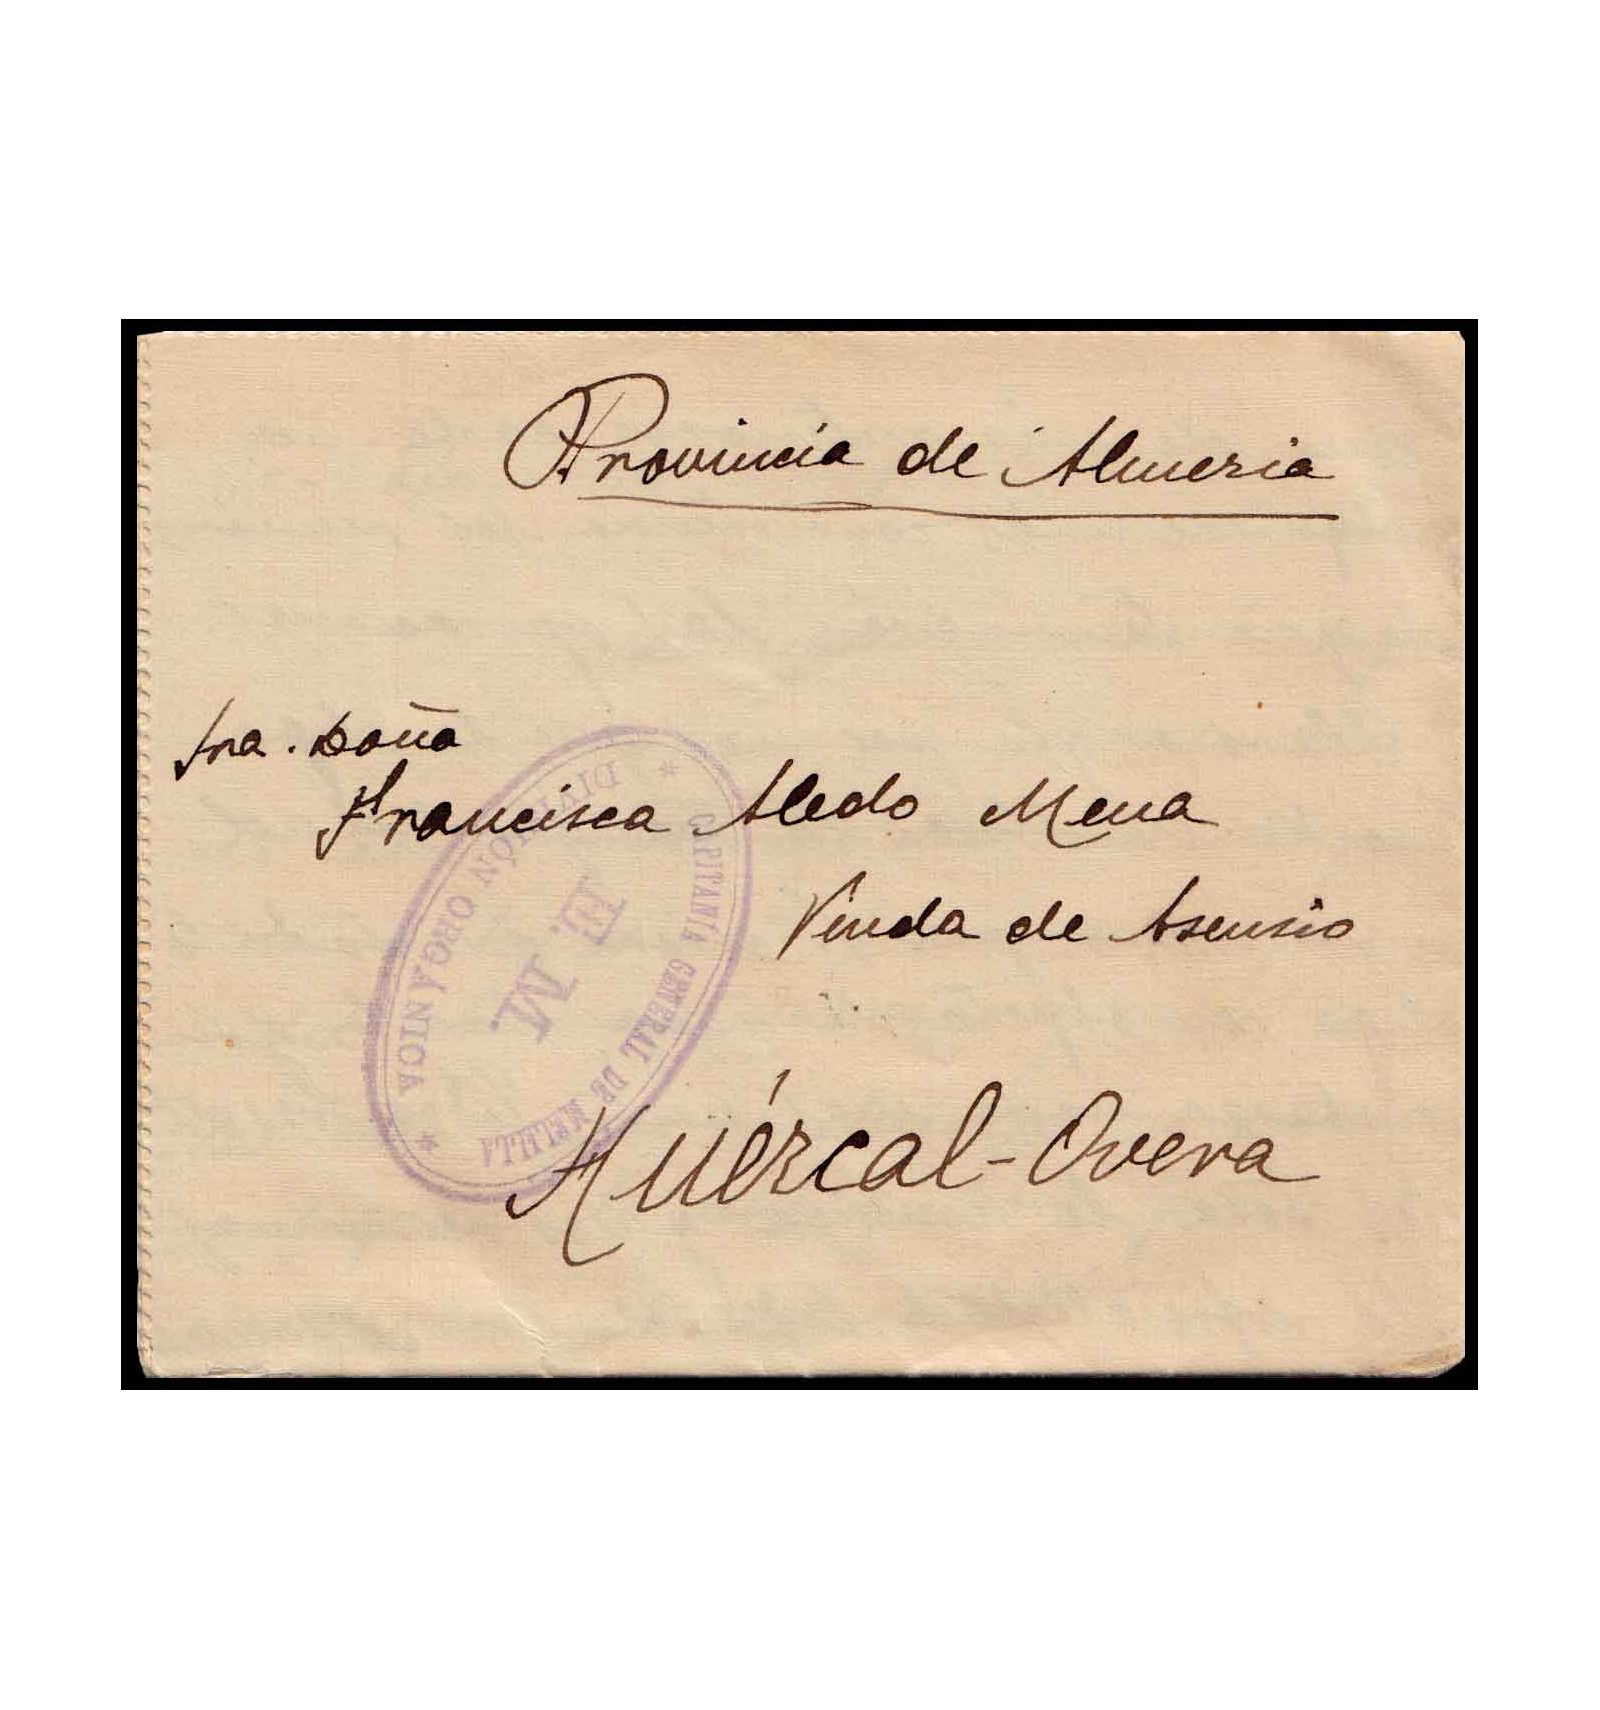 Provincia de Almeria
Sra. Doña
Francisca Aledo Mena
Viuda de Asensio
Huércal-Overa
CAPITANÍA GENERAL DE MELILLA
E. M.
DIVISIÓN ORGÁNICA